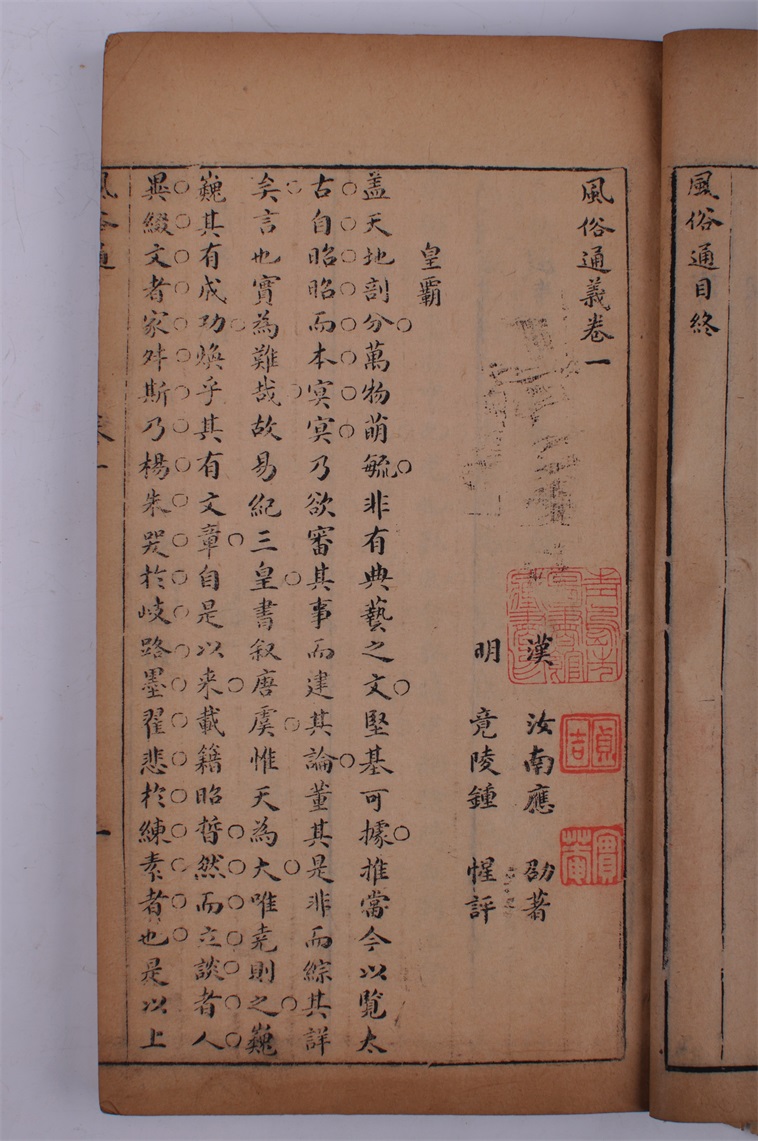 風俗通目終
風俗通義卷一
漢 汝南應 劭著
明 竟陵鍾 惺評
皇霸
盖天地剖分萬物萌毓非有典藝之文堅基可據推當今以覽太
古自昭昭而本㝠㝠乃欲審其事而建其論董其是非而綜其詳
矣言也實為難哉故易紀三皇書叙唐虞惟天為大唯堯則之巍
巍其有成功煥乎其有文章自是以来載籍昭晢然而立談者人
異綴文者家舛斯乃楊朱哭於岐路墨翟悲於練素者也是以上
風俗通
一